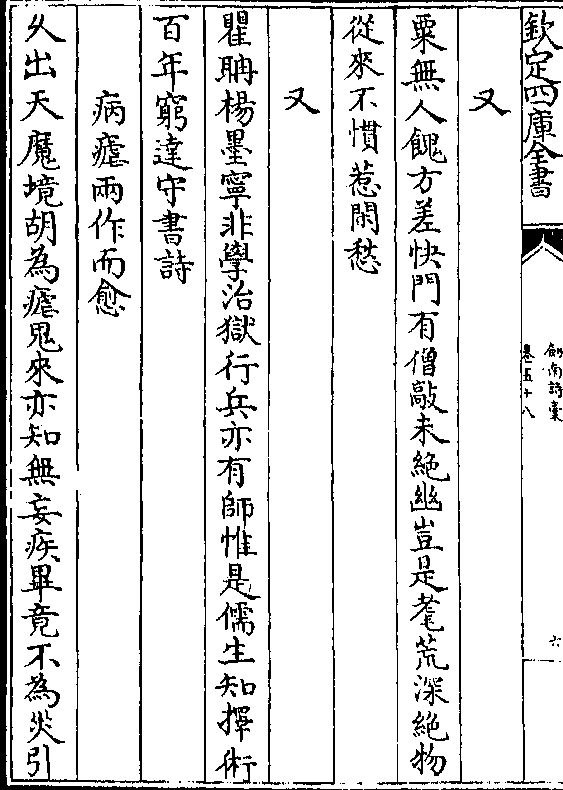 欽定四庫全書
劍南詩稾
卷五十八
六
又
粟無人餽方差快門有僧敲未絶幽豈是耄荒深絶物
從來不慣惹閑愁
又
瞿聃楊墨寧非學治獄行兵亦有師惟是儒生知擇術
百年窮達守書詩
病瘧兩作而愈
久出天魔境胡為瘧鬼來亦知無妄疾畢竟不為災引